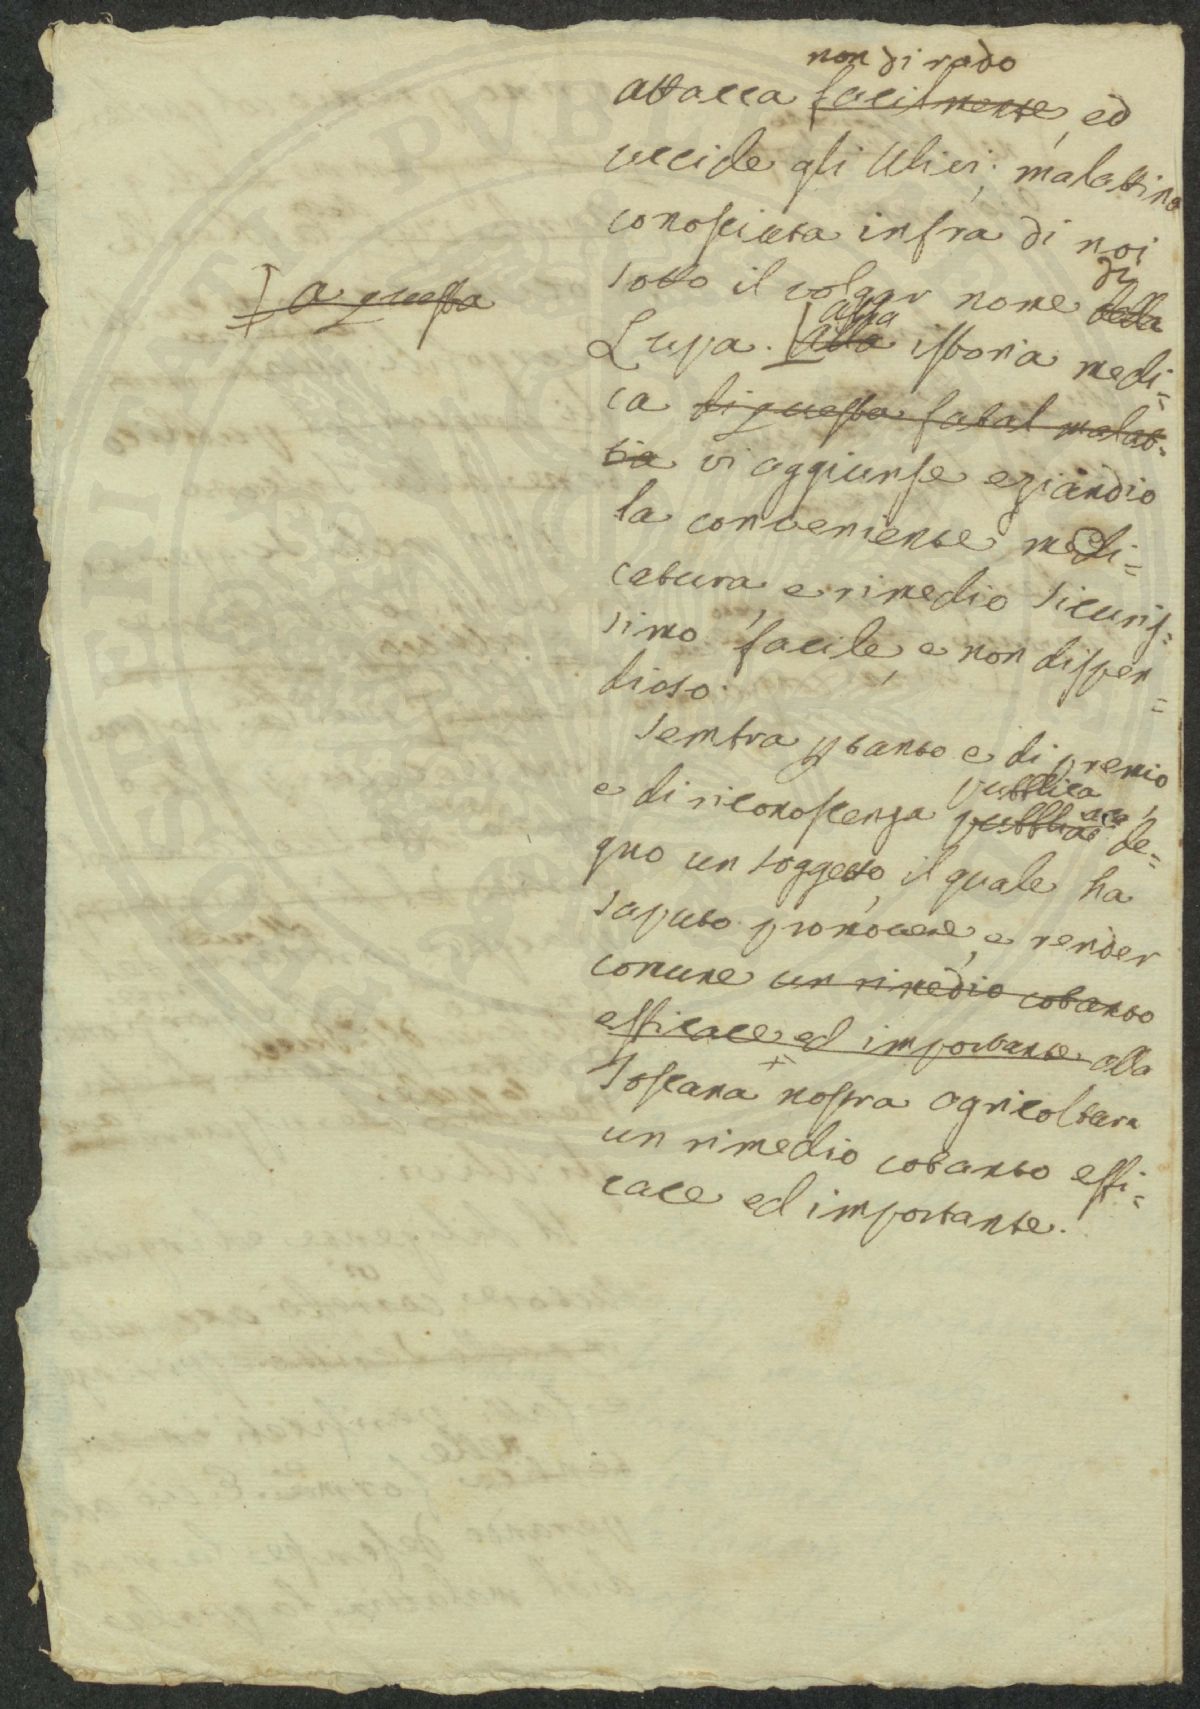 non di rado
attacca facilmente, ed
uccide gli Ulivi; malattia
conosciuta infra di noi
di
sotto il volgar nome della
alla
Lupa. Alla istoria medi=
a questa
ca di questa fatal malat=
tia vi aggiunse eziandio
la conveniente medi=
catura, e rimedio sicuris=
simo facile, e non dispen=
dioso.
Sembra ptanto e di premio,
pubblica
e di riconoscenza pubblica de=
gno un soggetto, il quale ha
saputo promovere, e render
comune un rimedio cotanto
efficace ed importante alla
Toscana nostra agricoltura
un rimedio cotanto effi=
cace ed importante.